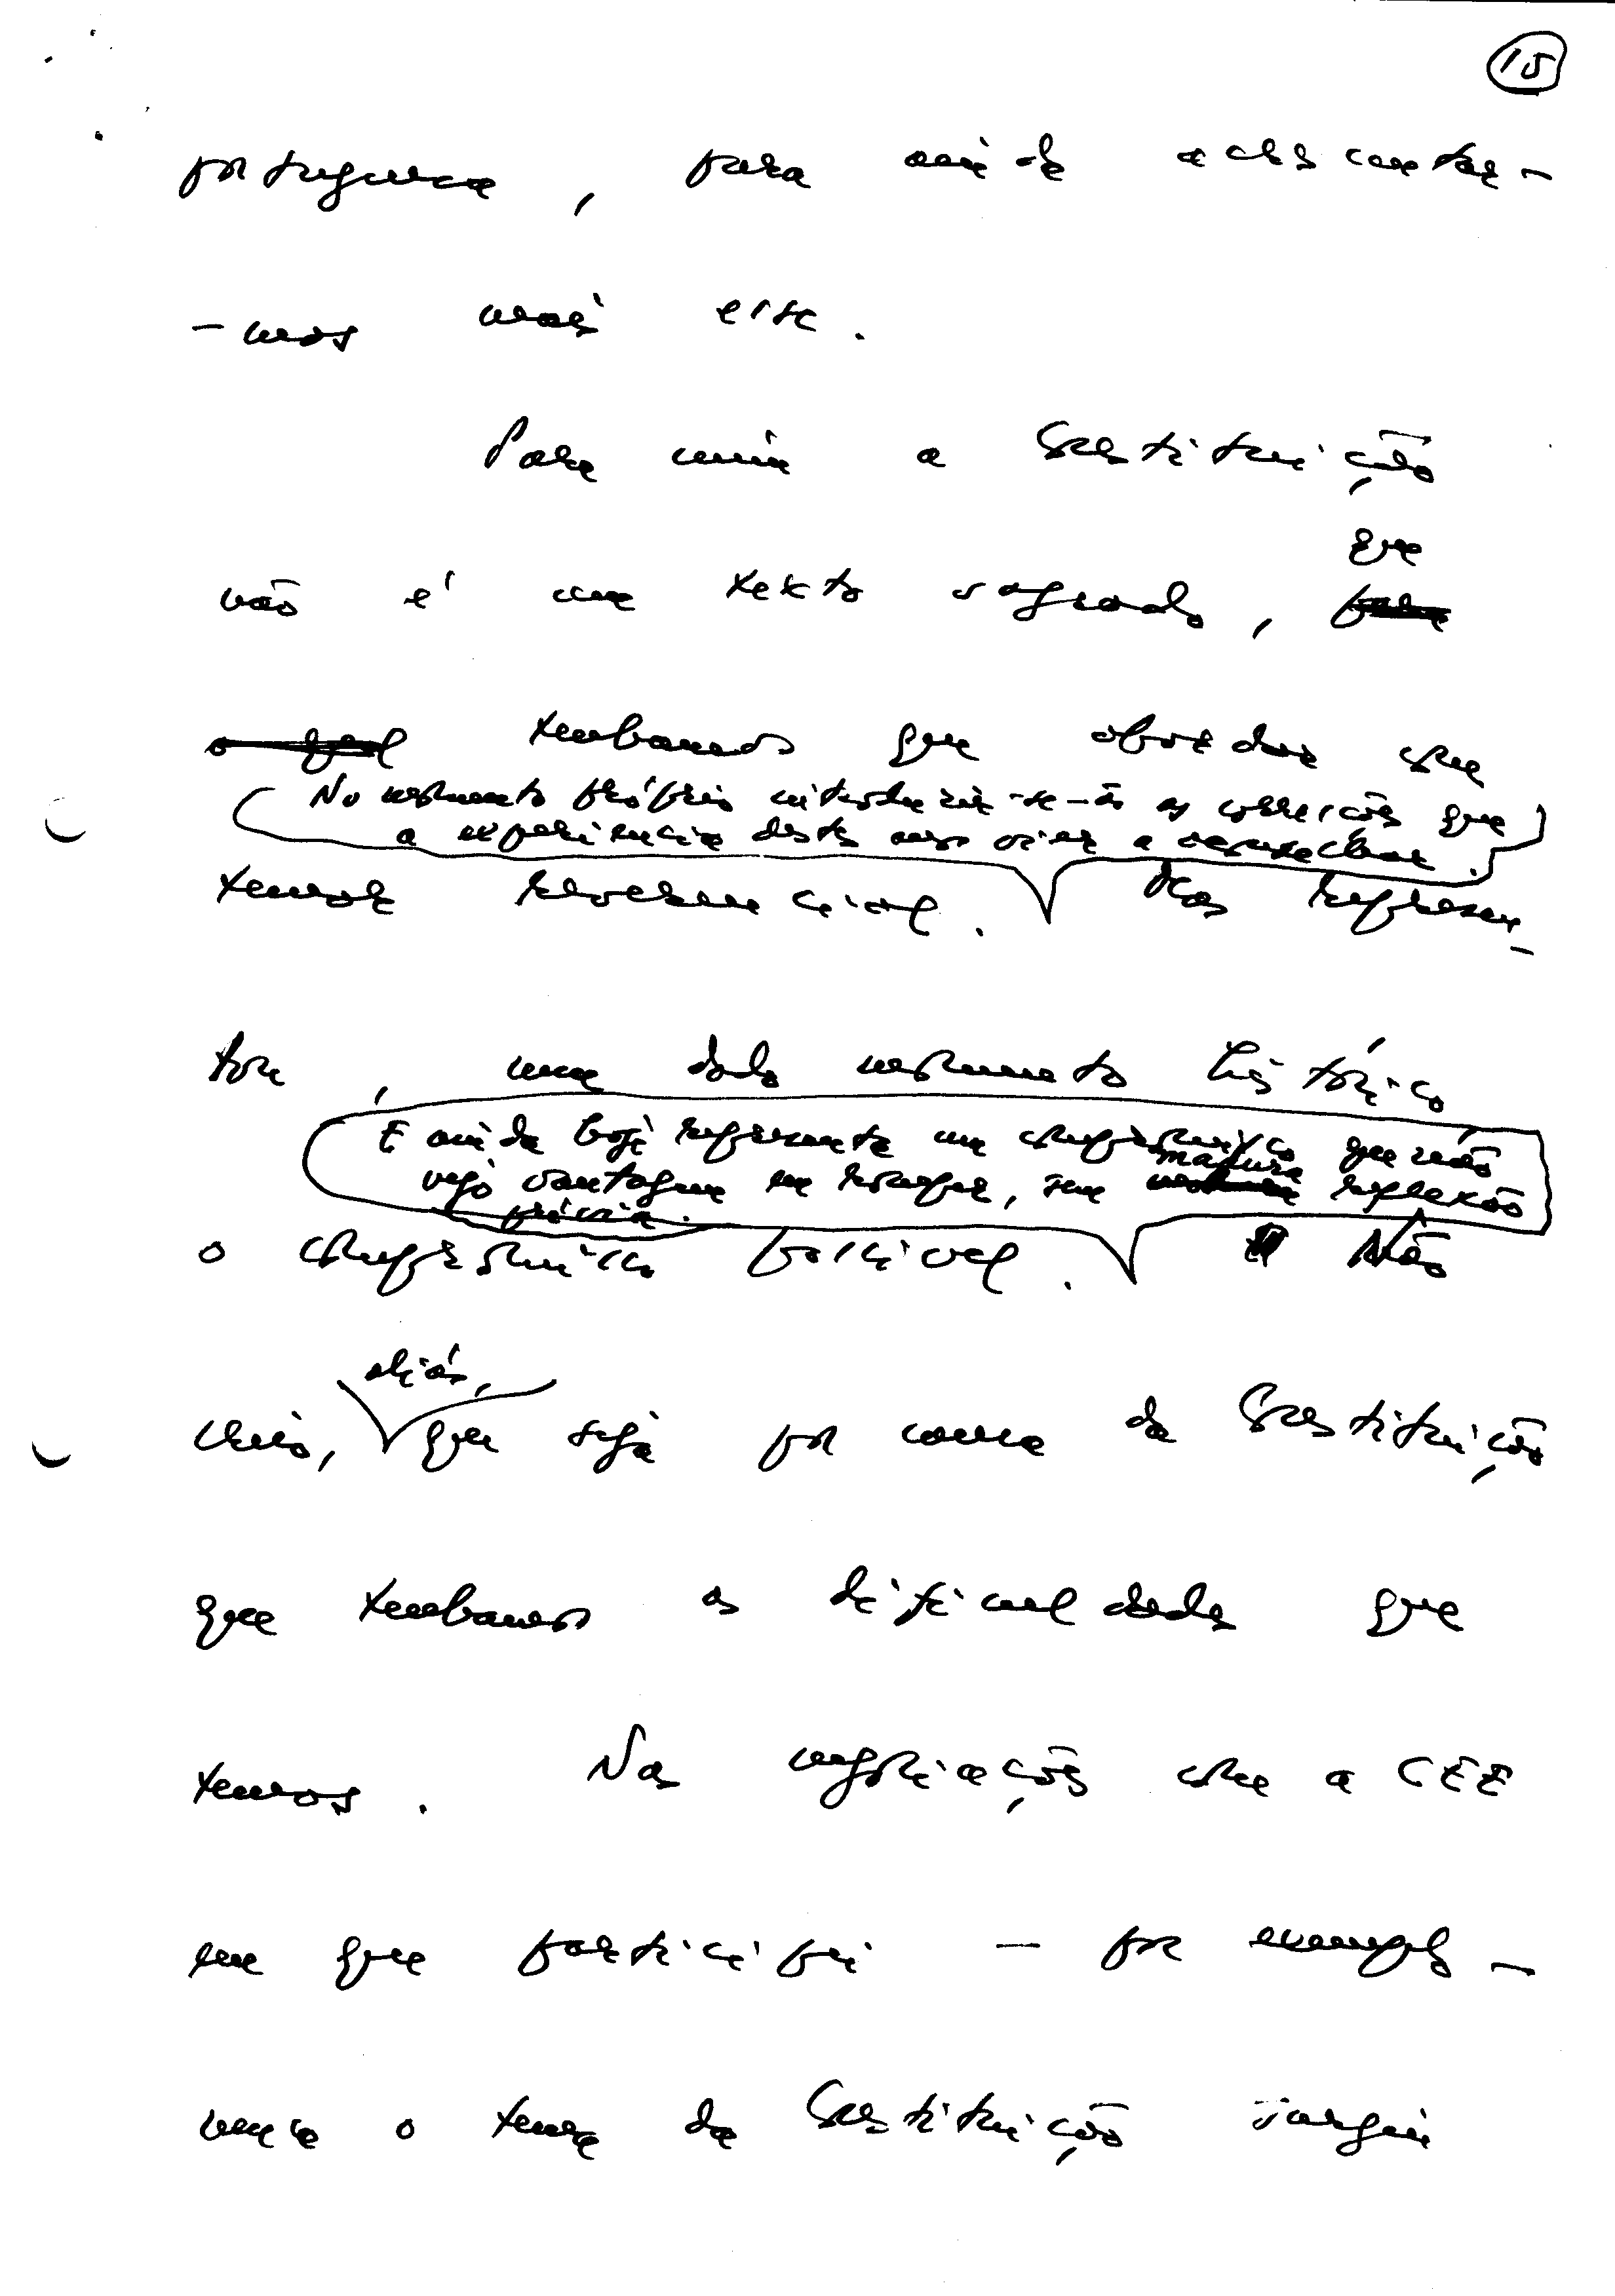 15
portuguesa, para ainda acrescentar-
-mos mais esse.
Para mim a Constituição
que
não é um texto sagrado, para
o qual tenhamos que abordar com
No momento próprio introduzir-se-ão as correcções que
a experiência destes anos vier a aconselhar.
temor reverencial. Mas represen-
tou, num dado momento histórico
E ainda hoje representa um compromisso que não
madura
vejo vantagem em romper, sem reflexão
prévia.
o compromisso possível. Não
aliás,
creio, que seja por causa da Constituição
que tenhamos as dificuldades que
temos. Nas negociações com a CEE
em que participei — por exemplo —
nunca o tema da Constituição surgiu